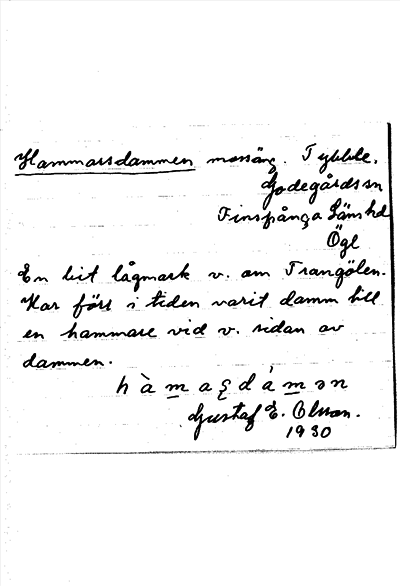 Hammarsdammen mossäng. Tybble,
Godegårds sn
Finspånga Läns hd
Ögl
En bit lågmark v. om Trangölen.
Har förr i tiden varit damm till
en hammare vid v. sidan av
dammen.
Gustaf E. Olsson.
1930